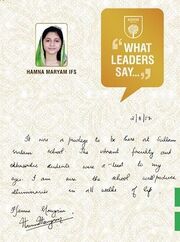 HAMNA MARYAM IFS
"WHAT
LEADERS
SAY..."
2/8/17
It was a privilege to be here at
school. The vibrant faculty and
students were a treat to my
eyes. I am sure the school will produce
in all walks of life
Hamna Maryam